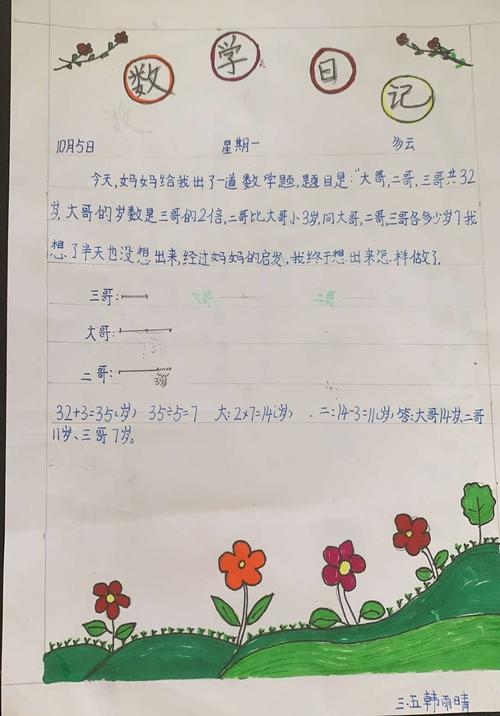 数学日记
10月5日 星期一 多云
今天,妈妈给我出了一道数学题,题目是:"大哥,二哥,三哥共32
岁,大哥的岁数是三哥的2倍,二哥比大哥小3岁,问大哥,二哥,三哥各多少岁?我
想了半天也没想出来,经过妈妈的启发,我终于想出来怎样做了.
三哥: 大哥 二哥
大哥:
3岁
二哥:
3岁
32+3=35(岁) 35÷5=7 大:2×7=14(岁) . 二:14-3=11(岁) 答:大哥14岁、二哥
11岁、三哥7岁。
三.五韩雨晴